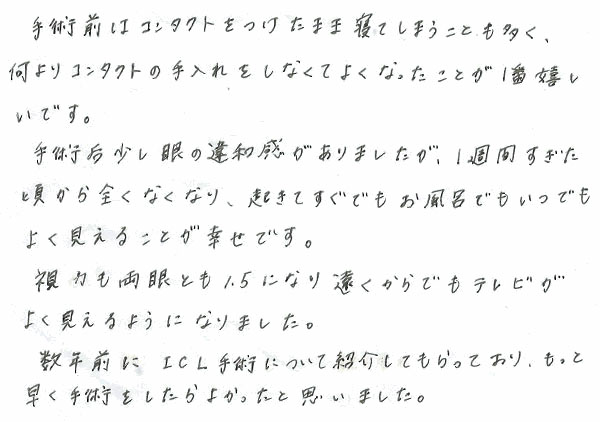 手術前はコンタクトをつけたまま寝てしまうことも多く、
何よりコンタクトの手入れをしなくてよくなったことが1番嬉し
いです。
手術后少し眼の違和感がありましたが、1週間すぎた
頃から全くなくなり、起きてすぐでもお風呂でもいつでも
よく見えることが幸せです。
視力も両眼とも1.5になり遠くからでもテレビが
よく見えるようになりました。
数年前にICL手術について紹介してもらっており、もっと
早く手術をしたらよかったと思いました。